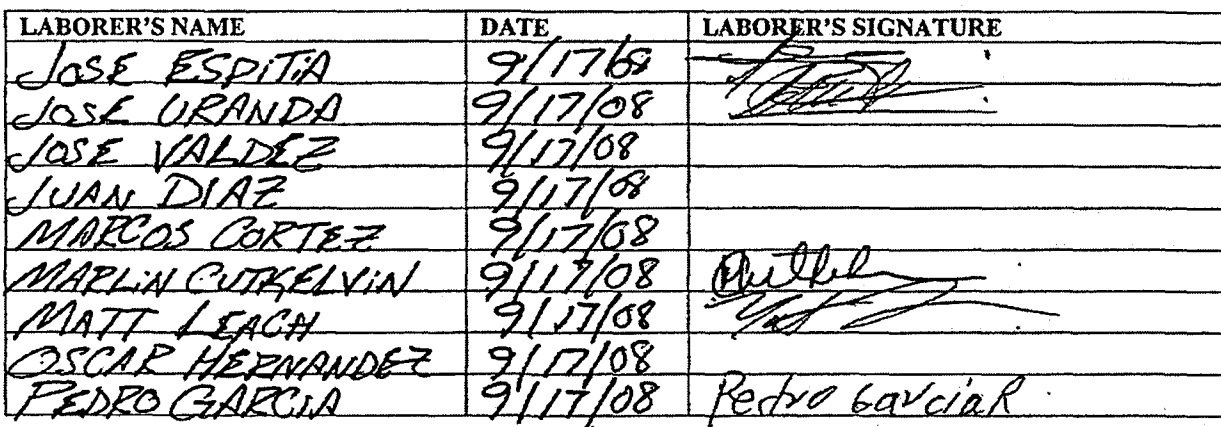 LABORER'S NAME DATE LABORER'S SIGNATURE
JOSE ESPITIA 9/17/08
JOSE URANDA 9/17/08
JOSE VALDEZ 9/17/08
JUAN DIAZ 9/17/08
MARCOS CORTEZ 9/17/08
MARLIN CUTKELVIN 9/17/08
MATT LEACH 9/17/08
OSCAR HERNANDEZ 9/17/08
PEDRO GARCIA 9/17/08 Pedro Garcia R